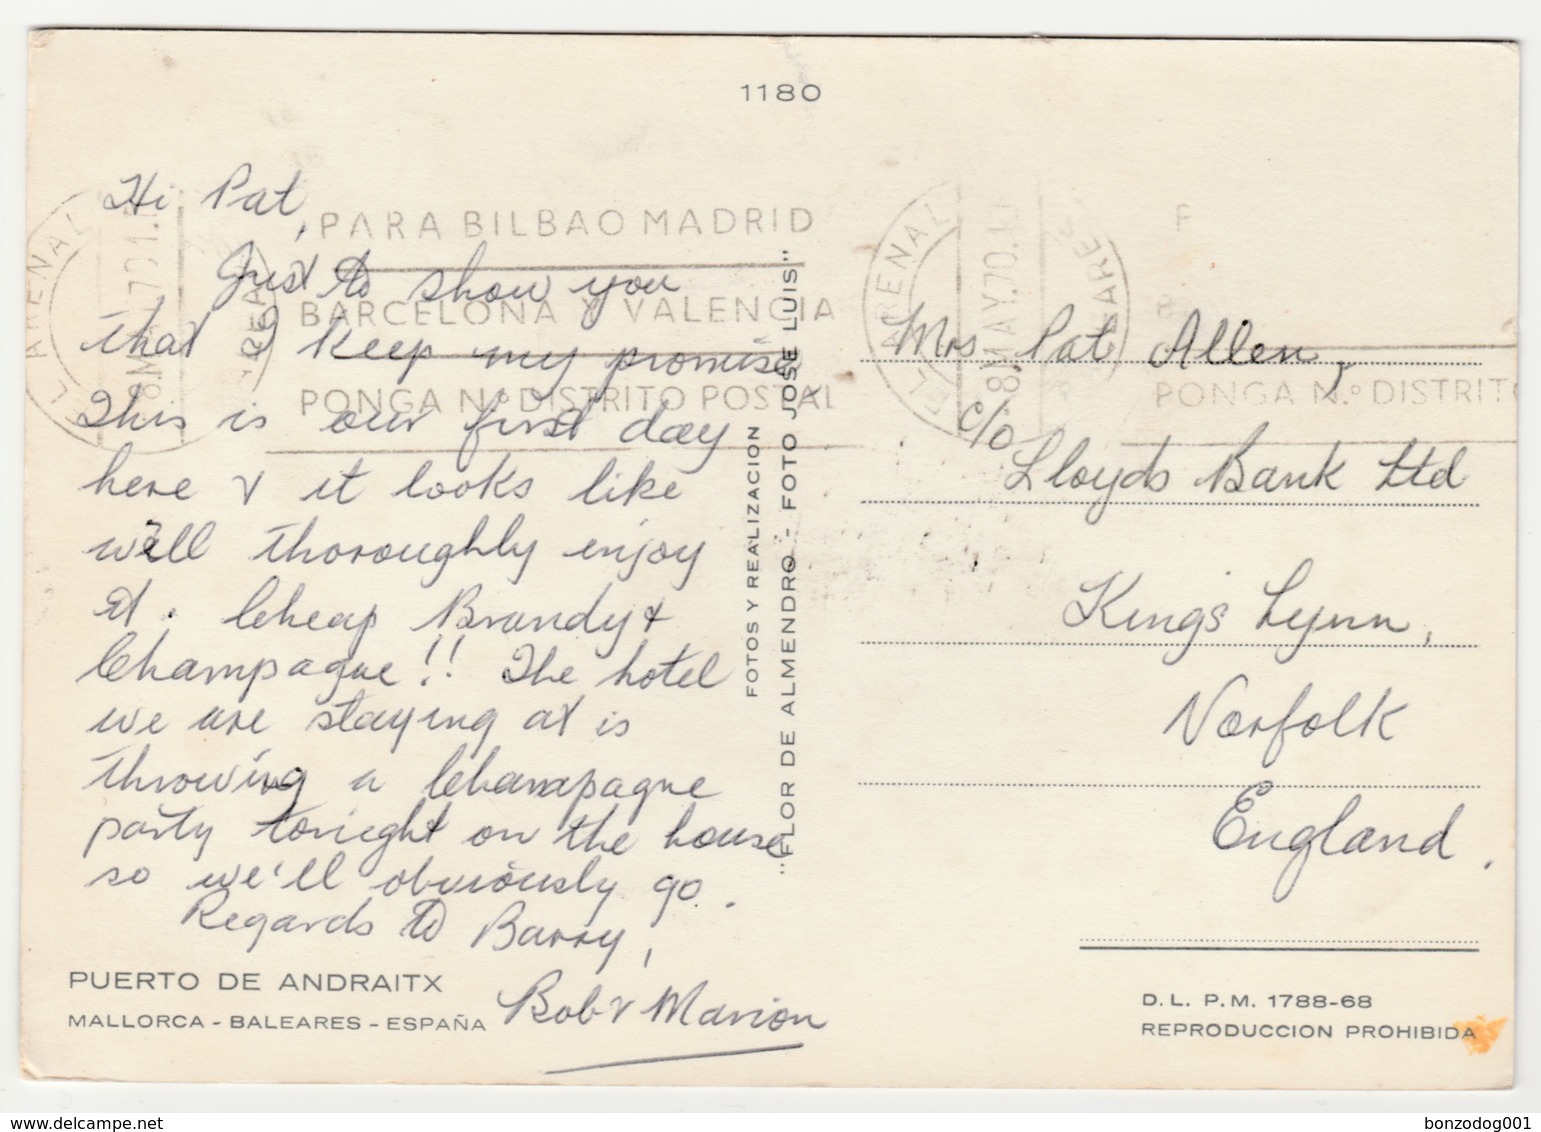 1180
Hi Pat,
PARA BILBAO MADRID
Just to show you
BARCELONA Y VALENCIA
that I keep my promise
PONGA N.º DISTRITO POSTAL
This is our first day
here & it looks like
we'll thoroughly enjoy
it. Cheap Brandy &
Champagne!! The hotel
we are staying at is
throwing a Champagne
party tonight on the house
so we'll obviously go.
Regards to Barry,
Bob & Marion
PUERTO DE ANDRAITX
MALLORCA - BALEARES - ESPAÑA
FOTOS Y REALIZACION
"FLOR DE ALMENDRO" - FOTO JOSE LUIS"
EL ARENAL
8 MAY. 70
BALEARES
P
PONGA N.º DISTRITO
Mrs Pat Allen,
c/o
Lloyds Bank Ltd
King's Lynn,
Norfolk
England.
D. L. P. M. 1788-68
REPRODUCCION PROHIBIDA
bonzodog001